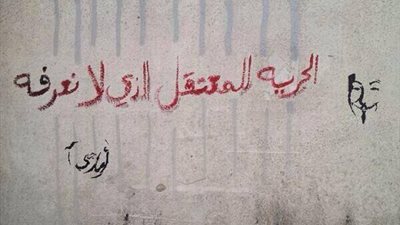 الحريه للمعتقل الذي لا نعرفه